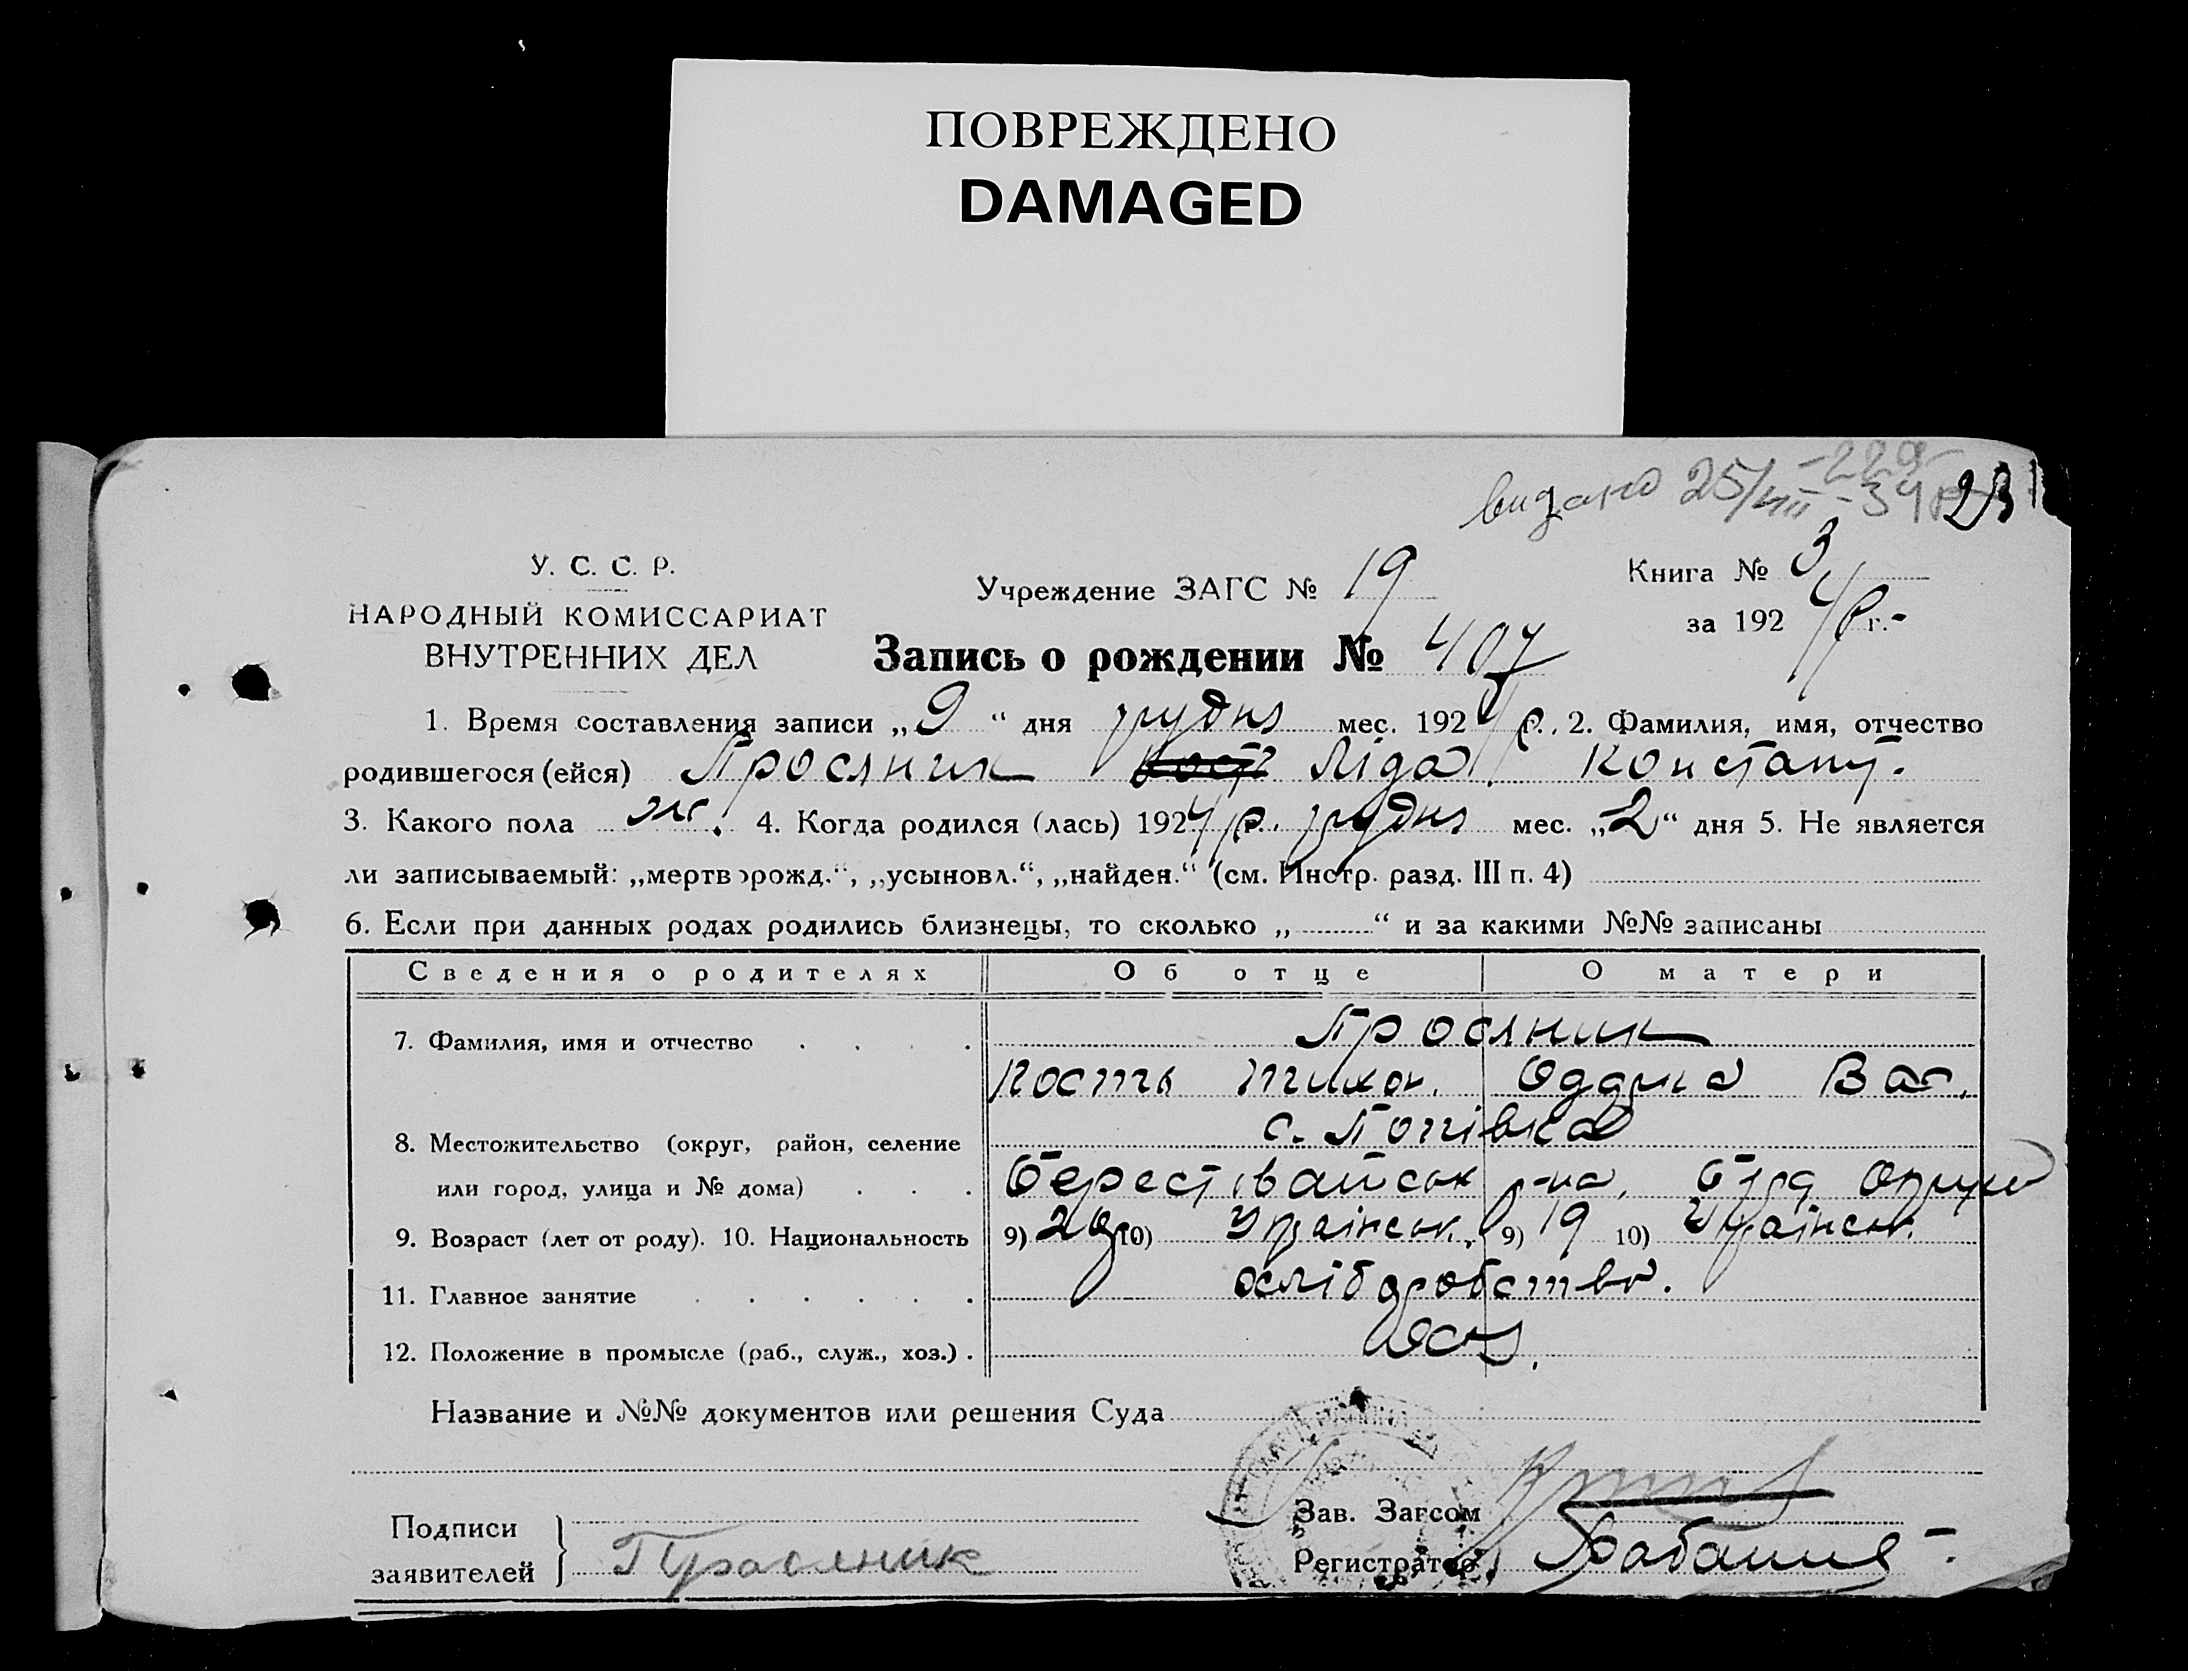 ПОВРЕЖДЕНО
DAMAGED
видано 25/VIII-34р
23
У. С. С. Р.
НАРОДНЫЙ КОМИССАРИАТ
ВНУТРЕННИХ ДЕЛ
Учреждение ЗАГС № 19
Книга № 3
за 192 4 р г.-
Запись о рождении № 407
1. Время составления записи „ 9 “ дня грудня мес. 192 4 р., 2. Фамилия, имя, отчество
родившегося (ейся) Просяник Ліда Констант.
3. Какого пола ж. 4. Когда родился (лась) 192 4 р. грудня мес. „2“ дня 5. Не является
ли записываемый: „мертворожд.“, „усыновл.“, „найден.“ (см. Инстр. разд. III п. 4)
6. Если при данных родах родились близнецы, то сколько „ “ и за какими №№ записаны
Сведения о родителях Об отце О матери
7. Фамилия, имя и отчество Просяник
Кость Тихон. Вас.
8. Местожительство (округ, район, селение с. Попівка
или город, улица и № дома) р-на, округи
9. Возраст (лет от роду). 10. Национальность 9) 20 10) Українськ. 9) 19 10) Українськ.
11. Главное занятие хліборобство.
12. Положение в промысле (раб., служ., хоз.)
Название и №№ документов или решения Суда
Зав. Загсом
Подписи
заявителей
Просяник
Регистратор